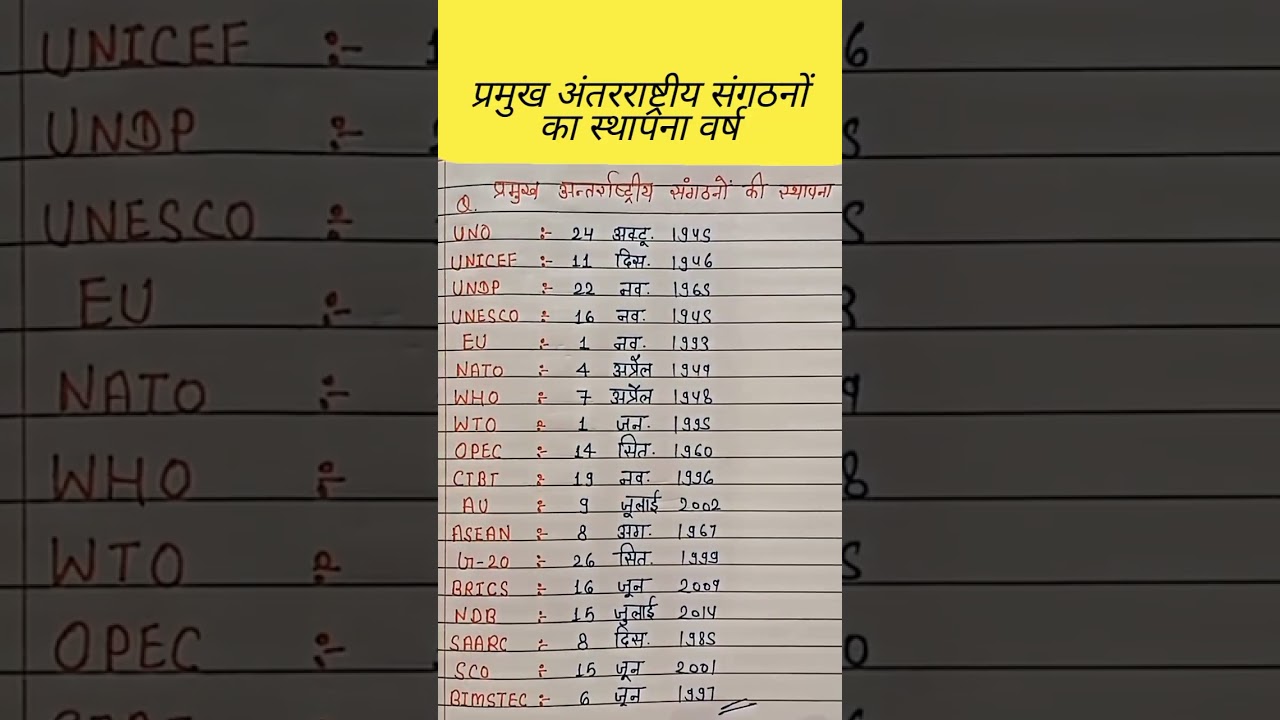 प्रमुख अंतरराष्ट्रीय संगठनों
का स्थापना वर्ष
Q. प्रमुख अन्तर्राष्ट्रीय संगठनों की स्थापना
UNO :- 24 अक्टू. 1945
UNICEF :- 11 दिस. 1946
UNDP :- 22 नव. 1965
UNESCO :- 16 नव. 1945
EU :- 1 नव. 1993
NATO :- 4 अप्रैल 1949
WHO :- 7 अप्रैल 1948
WTO :- 1 जन. 1995
OPEC :- 14 सित. 1960
CTBT :- 19 नव. 1996
AU :- 9 जूलाई 2002
ASEAN :- 8 अग. 1967
G-20 :- 26 सित. 1999
BRICS :- 16 जून 2009
NDB :- 15 जुलाई 2014
SAARC :- 8 दिस. 1985
SCO :- 15 जून 2001
BIMSTEC :- 6 जून 1997
UNICEF :-
UNDP :-
UNESCO :-
EU :-
NATO
WHO :-
WTO :-
OPEC :-